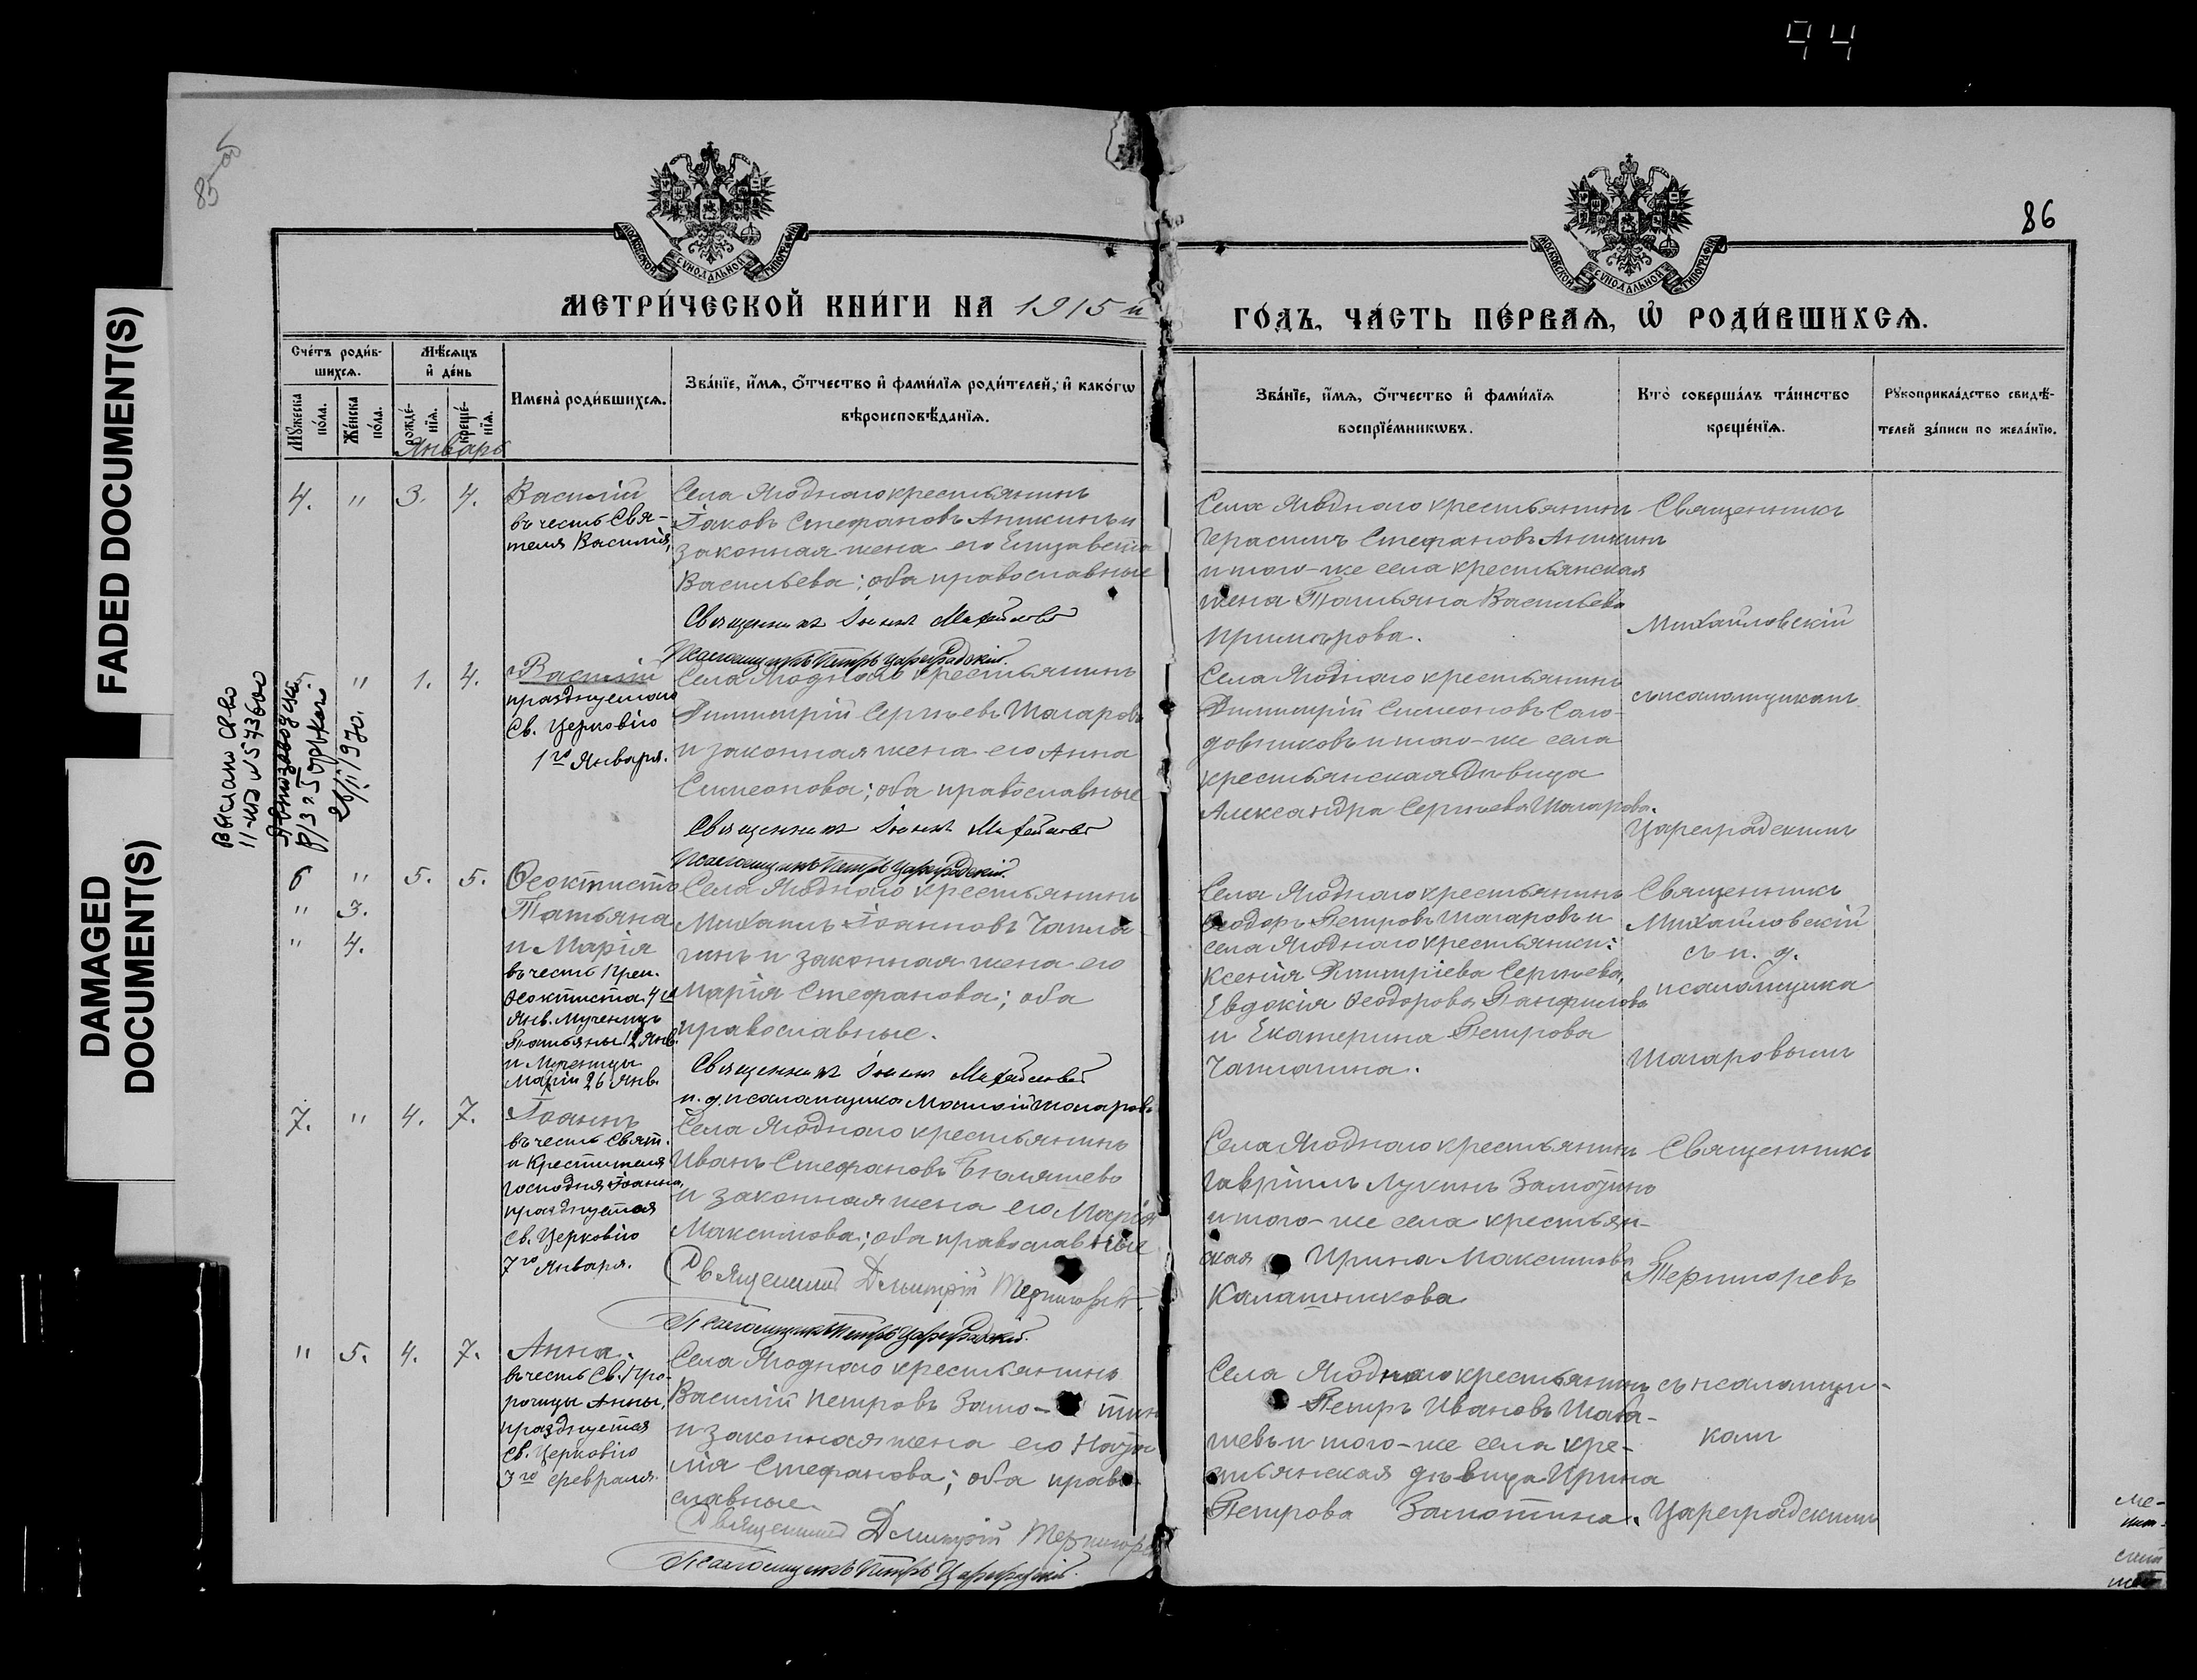 44
85 об
86
МОСКОВСКОЙ СУНОДАЛЬНОЙ ТИПОГРАФІИ
МОСКОВСКОЙ СУНОДАЛЬНОЙ ТИПОГРАФІИ
FADED DOCUMENT(S)
DAMAGED
DOCUMENT(S)
МЕТРИ́ЧЕСКОЙ КНИ́ГИ НА 1915 й
ГО́ДЪ, ЧА́СТЬ ПЕ́РВАѦ, Ѽ РОДИ́ВШИХСѦ.
Сче́тъ роди́в-
шихсѧ.
Мꙋ́жеска по́ла.
Же́нска по́ла.
Мѣ́сѧцъ
и҆ де́нь
рожде́-
нїѧ.
креще́-
нїѧ.
Январь
И҆мена̀ роди́вшихсѧ.
Зва́нїе, и҆́мѧ, ѻ҆́тчество и҆ фами́лїѧ роди́телей, и҆ како́гѡ
вѣроисповѣ́данїѧ.
Зва́нїе, и҆́мѧ, ѻ҆́тчество и҆ фами́лїѧ
воспрїе́мникѡвъ.
Кто̀ соверша́лъ та́инство
креще́нїѧ.
Рꙋкоприкла́дство свидѣ́-
телей за́писи по жела́нїю.
4. " 3. 4.
Василій
въ честь Свя-
теля Василія,
Села Ягоднаго крестьянинъ
Іаковъ Стефановъ Аникинъ и
законная жена его Елизавета
Васильева; оба православные
Священникъ Іоаннъ Михайловскій
Псаломщикъ Петръ Цареградскій.
Села Ягоднаго крестьянинъ
Герасимъ Стефановъ Аникинъ
и того-же села крестьянская
жена Татьяна Васильева
Священникъ
Михайловскій
съ псаломщикомъ
Цареградскимъ
Выслано св-во
11-ИЭ № 573600
26/II 1970.
" 1. 4.
Василій
празднуемаго
Св. Церковію
1го Января.
Села Ягоднаго крестьянинъ
Димитрій Сергѣевъ Шагаровъ
и законная жена его Анна
Симеонова; оба православные
Священникъ Іоаннъ Михайловскій
Псаломщикъ Петръ Цареградскій.
Села Ягоднаго крестьянинъ
Димитрій Симеоновъ Соло-
довниковъ и того-же села
крестьянская дѣвица
Александра Сергѣева Шагарова.
6 " 5. 5.
" 3.
" 4.
Ѳеоктистъ
Татьяна
и Марія
въ честь Преп.
Ѳеоктиста 4го
Янв. Мученицъ
Татьяны 12 Янв.
и
Маріи 26 Янв.
Села Ягоднаго крестьянинъ
Михаилъ Іоанновъ Чапла-
гинъ и законная жена его
Марія Стефанова; оба
православные.
Священникъ Іоаннъ Михайловскій
и. д. псаломщика Шагаровъ
Села Ягоднаго крестьянинъ
Ѳеодоръ Петровъ Шагаровъ и
села Ягоднаго крестьянки:
Ксенія Димитріева Сергѣева,
Евдокія Ѳеодорова Панфилова
и Екатерина Петрова
Чаплагина.
Священникъ
Михайловскій
съ и. д.
псаломщика
Шагаровымъ
7. " 4. 7.
Іоаннъ
въ честь Свят.
и Крестителя
Господня Іоанна,
празднуемая
Св. Церковію
7го Января.
Села Ягоднаго крестьянинъ
Иванъ Стефановъ
и законная жена его Марія
Максимова; оба православные
Священникъ Дмитрій Терпигоревъ
Псаломщикъ Петръ Цареградскій.
Села Ягоднаго крестьянинъ
Гавріилъ Лукинъ Замотинъ
и того-же села крестьян-
ская Ирина Максимова
Калашникова
Священникъ
Терпигоревъ
" 5. 4. 7.
Анна.
въ честь Св. Про-
рочицы Анны,
празднуемая
Св. Церковію
3го февраля.
Села Ягоднаго крестьянинъ
Василій Петровъ Замо- тинъ
и законная жена его Ната-
лія Стефанова; оба право-
славные.
Священникъ Дмитрій Терпигоревъ
Псаломщикъ Петръ Цареградскій.
Села Ягоднаго крестьянинъ
Петръ Ивановъ Шаба-
шевъ и того-же села кре-
стьянская дѣвица Ирина
Петрова Замотина.
съ псаломщи-
комъ
Цареградскимъ